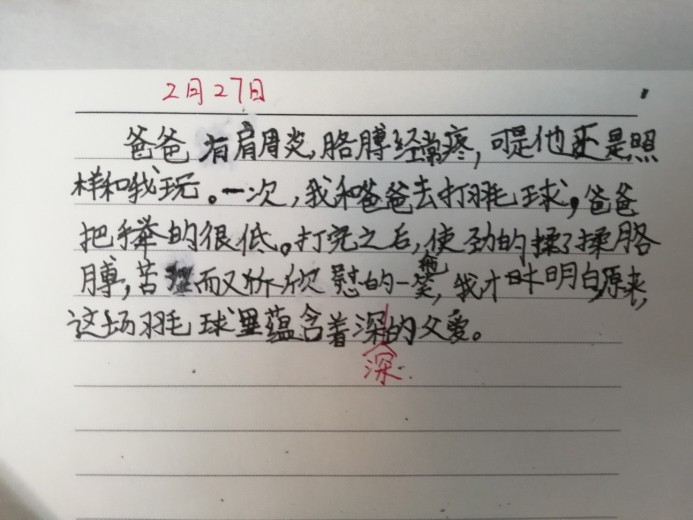 2月27日
爸爸有肩周炎,胳膊经常疼,可是他还是照
样和我玩。一次,我和爸爸去打羽毛球,爸爸
把手举的很低。打完之后,使劲的揉了揉胳
膊,苦 而又欣慰的一笑,我才明白,原来,
这场羽毛球里蕴含着深的父爱。
深